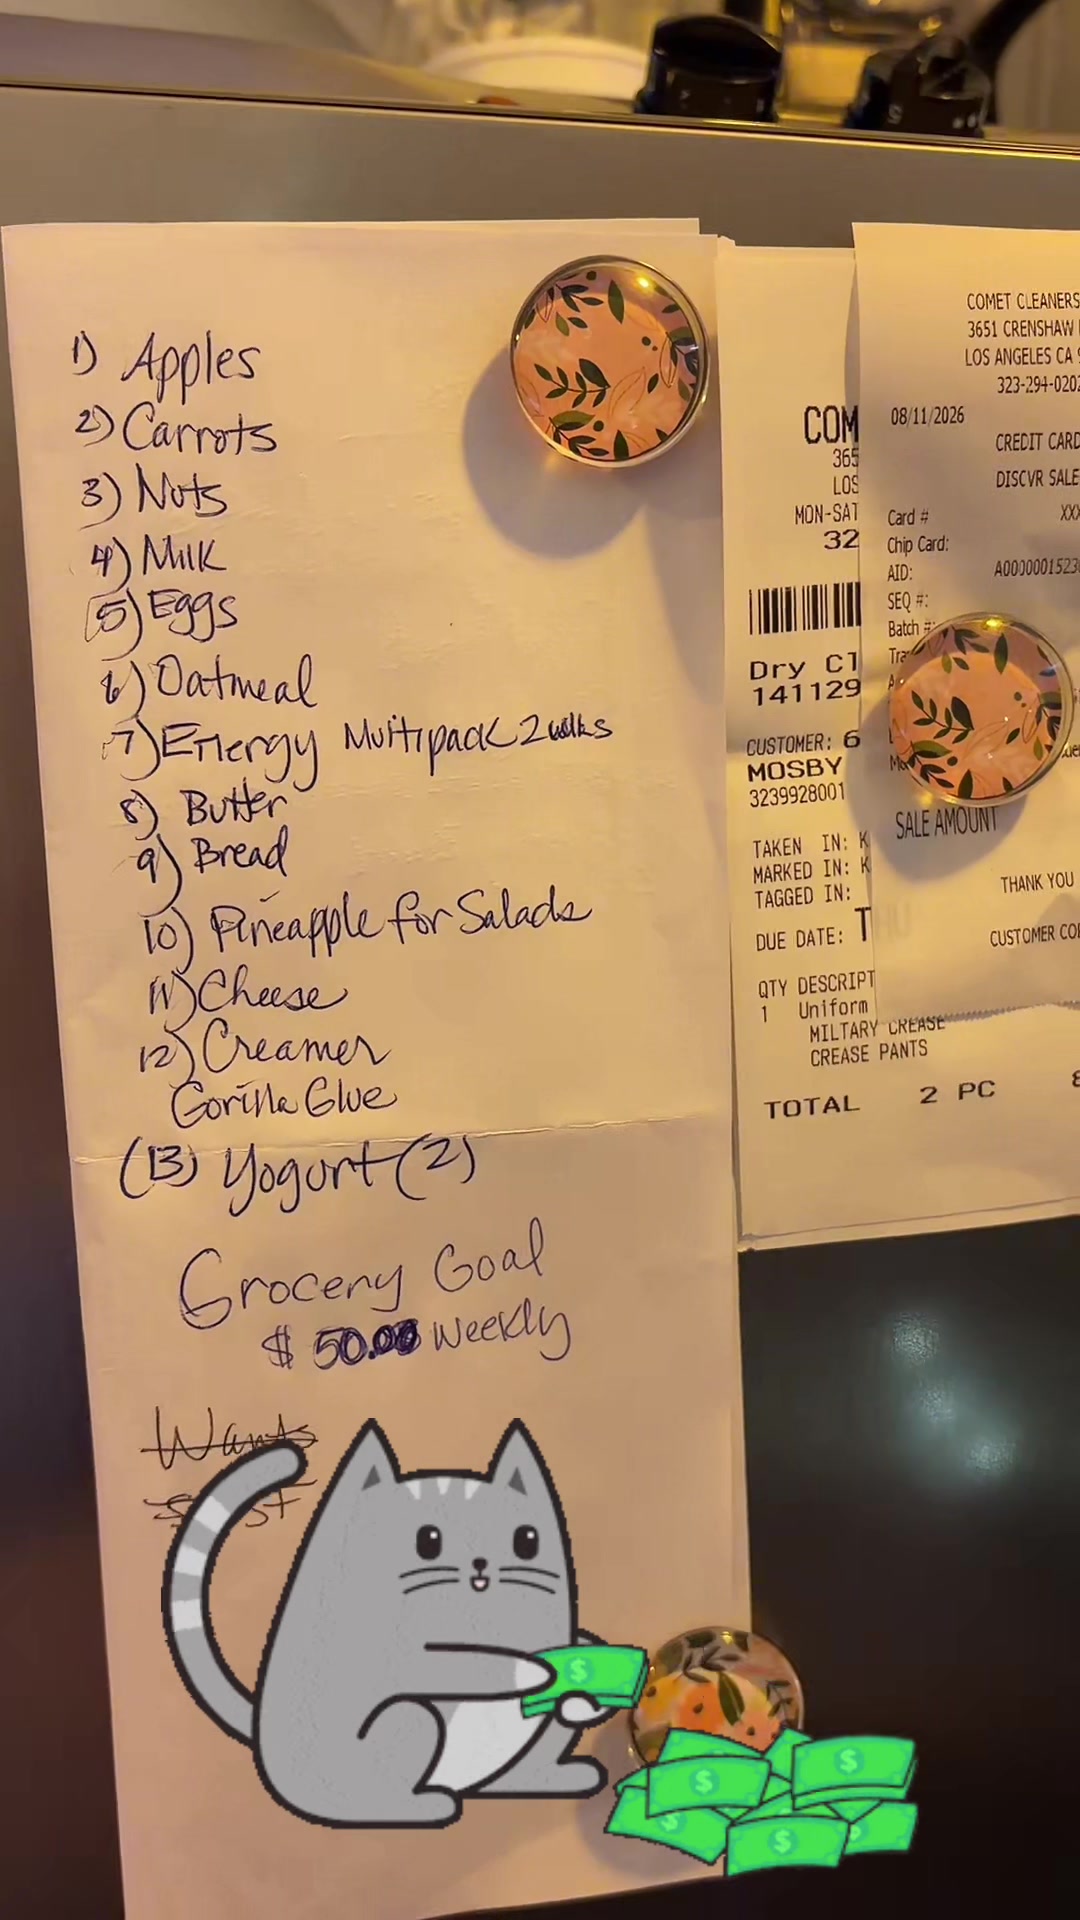 1) Apples
2) Carrots
3) Nuts
4) Milk
5) Eggs
6) Oatmeal
7) Energy Multipack 2
8) Butter
9) Bread
10) Pineapple for Salads
11) Cheese
12) Creamer
Gorilla Glue
(13) Yogurt (2)
Grocery Goal
$ 50.00 Weekly
Wants
COM
365
LOS
MON-SAT
32
Dry Cl
141129
CUSTOMER: 6
MOSBY
3239928001
TAKEN IN: K
MARKED IN: K
TAGGED IN:
DUE DATE: T
QTY DESCRIPT
1 Uniform
MILTARY CREASE
CREASE PANTS
TOTAL 2 PC
COMET CLEANERS
3651 CRENSHAW
LOS ANGELES CA 9
323-294-0202
08/11/2026
CREDIT CARD
DISCVR SALE
Card # XX
Chip Card:
AID: A0000001523
SEQ #:
Batch #:
Tra
SALE AMOUNT
THANK YOU
CUSTOMER CO